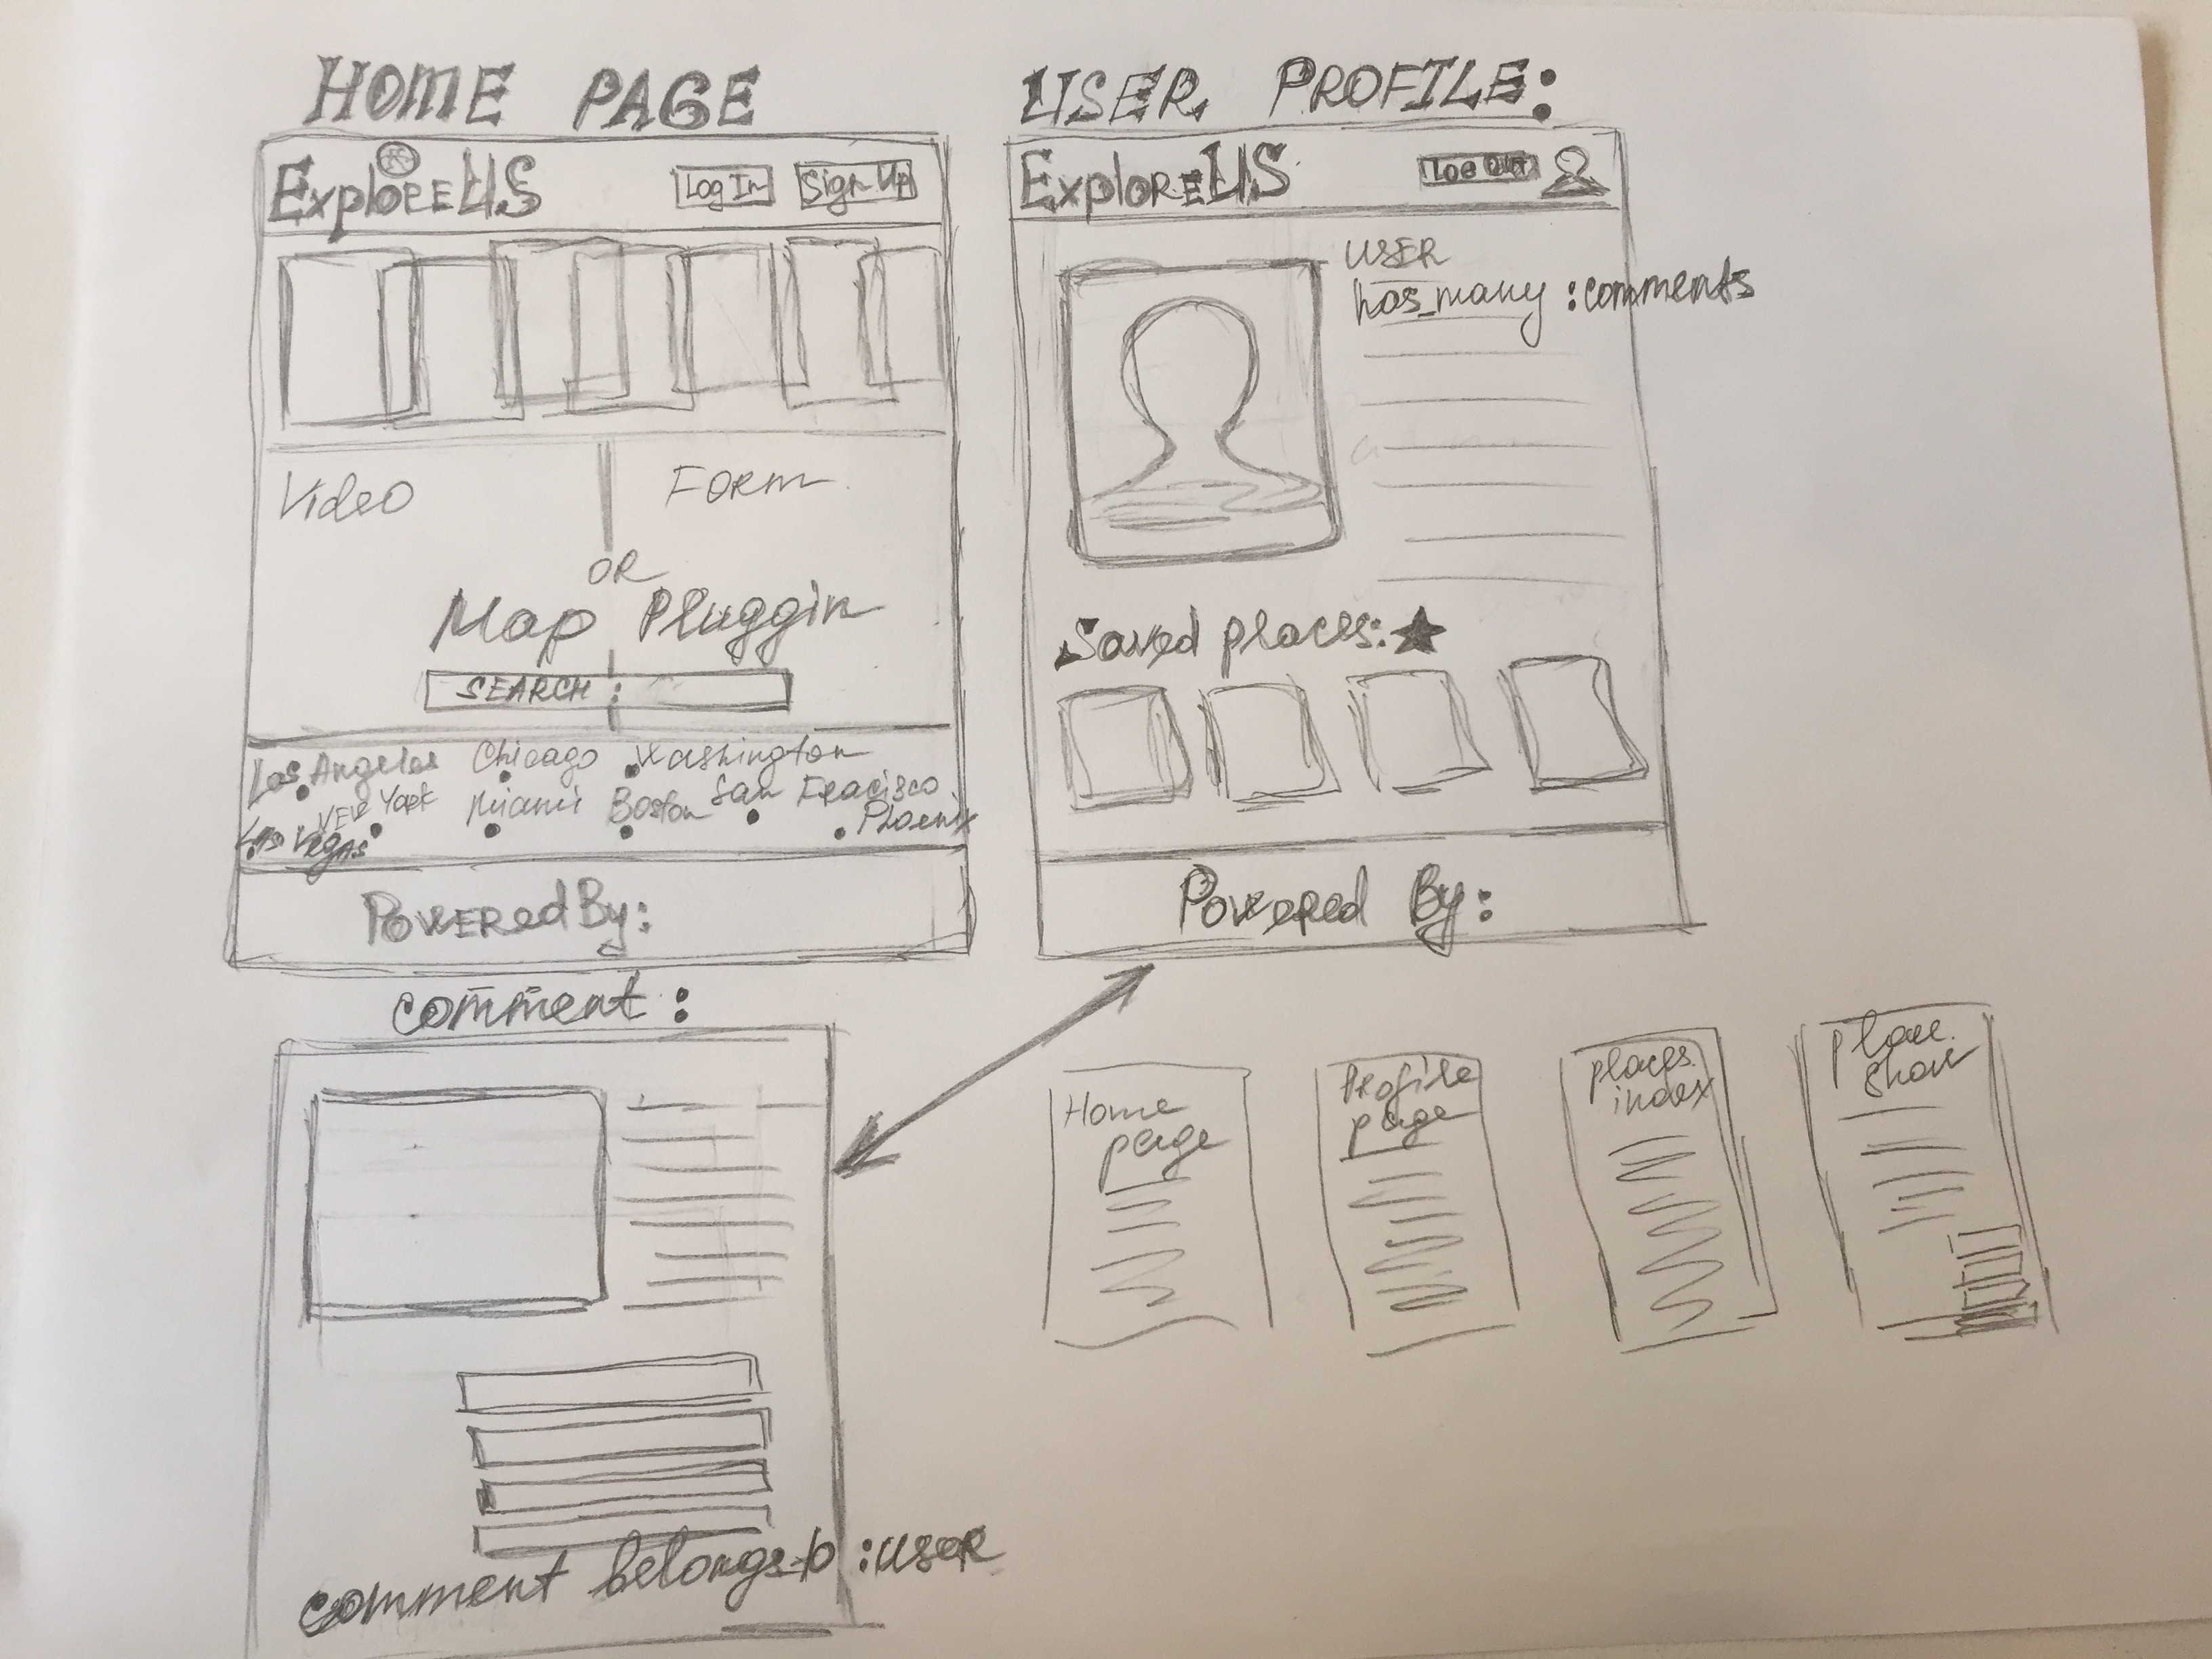 HOME PAGE
ExploreUS
Log In
Sign Up
Video
Form
OR
Map Pluggin
SEARCH :
Los Angeles
Chicago
Washington
New York
Miami
Boston
San Fracisco
Las Vegas
Phoenix
Powered By:
USER PROFILE:
ExploreUS
Log Out
USER
has_many :comments
Saved places:★
Powered By:
comment :
comment belongs_to :user
Home
page
Profile
page
places
index
place
show